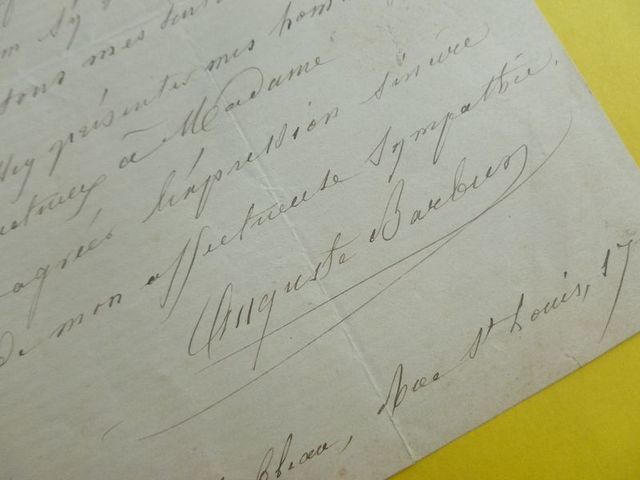 tous mes
présenter mes hom
à Madame
agréer l'expression sincère
de mon affectueuse sympathie.
Auguste Barbier
bleau, Rue St Louis, 17